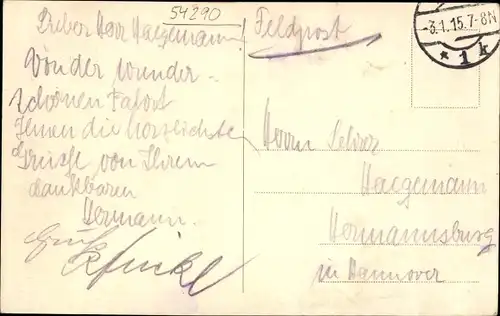 54290
Feldpost
3.1.15. 7-8N
* 1 k
Lieber Herr Haegemann!
Von der wunder-
schönen Fahrt
Ihnen die herzlichste
Grüsse von Ihrem
dankbaren
Hermann.
Gruß
Herrn Lehrer
Haegemann
Hermannsburg
in Hannover